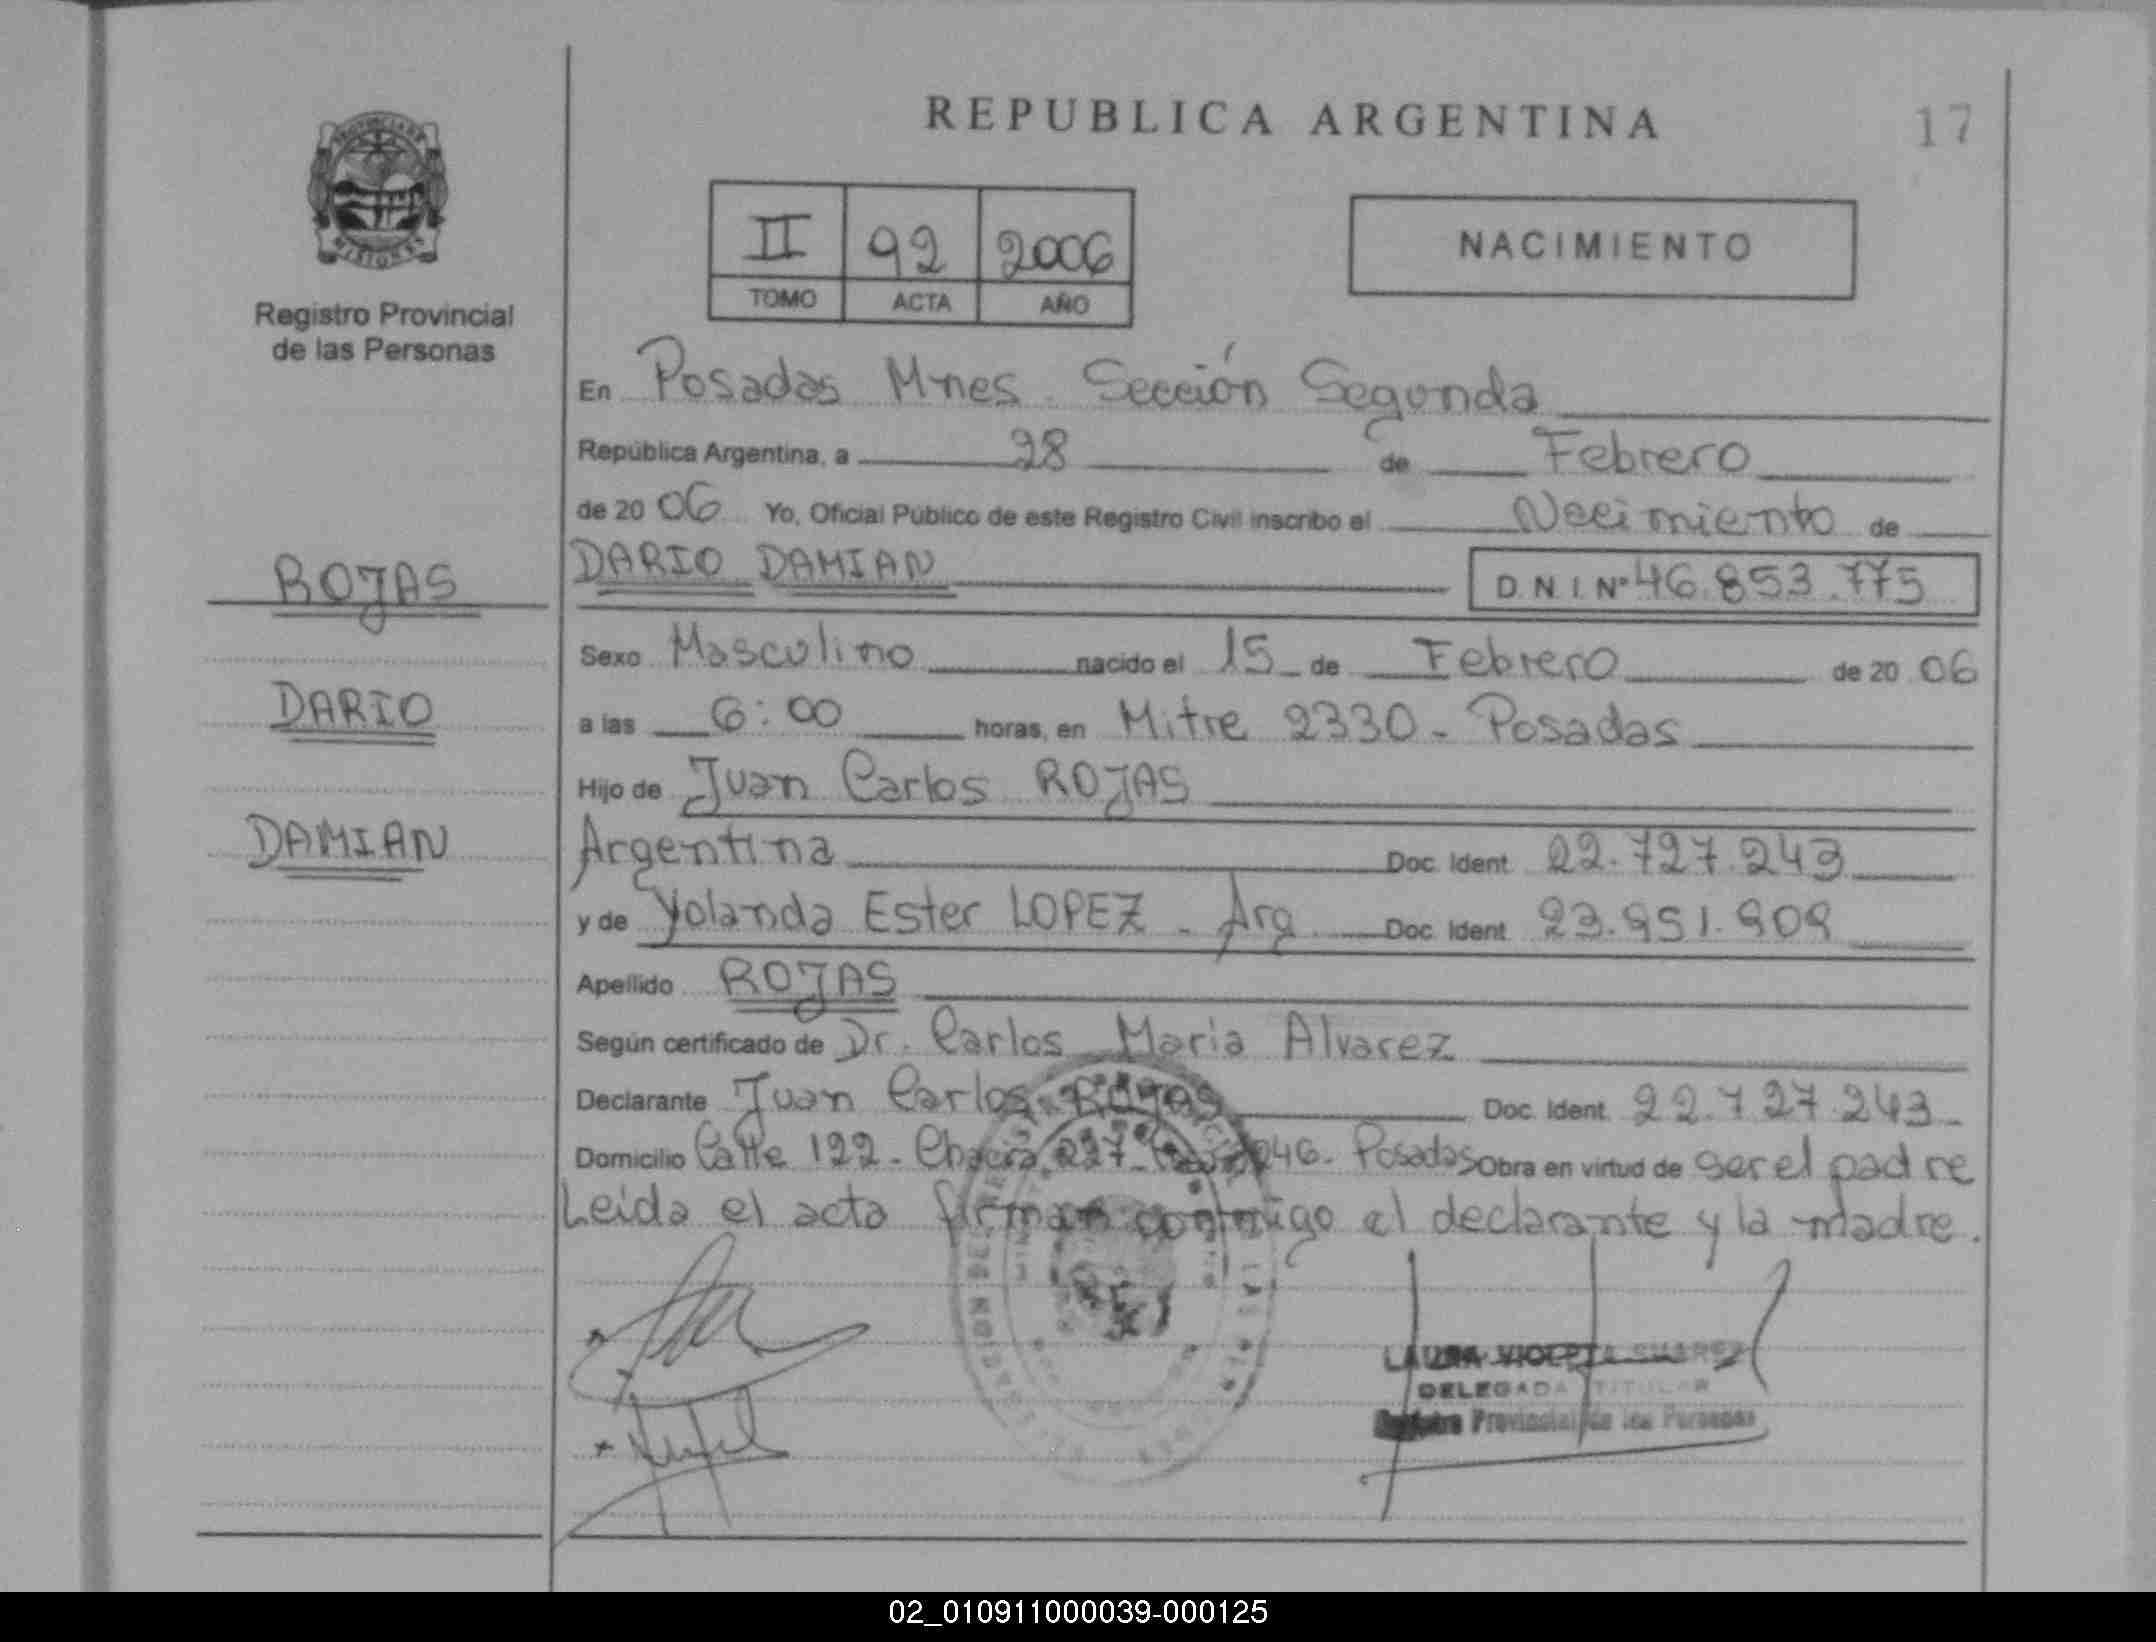 REPUBLICA ARGENTINA
17
PROVINCIA DE
MISIONES
Registro Provincial
de las Personas
II 92 2006
TOMO ACTA AÑO
NACIMIENTO
En Posadas Mnes. Sección Segunda
República Argentina, a 28 de Febrero
de 2006 Yo, Oficial Público de este Registro Civil inscribo el Necimiento de
ROJAS
DARIO DAMIAN D.N.I. Nº 46.853.775
Sexo Masculino nacido el 15 de Febrero de 2006
DARIO
a las 6:00 horas, en Mitre 2330 - Posadas
Hijo de Juan Carlos ROJAS
DAMIAN
Argentina Doc. Ident. 22.727.243
y de Yolanda Ester LOPEZ - Arg Doc. Ident. 23.951.909
Apellido ROJAS
Según certificado de Dr. Carlos Maria Alvarez
Declarante Juan Carlos ROJAS Doc. Ident. 22.727.243
Domicilio Calle 122 - Chacra 227 - 246 - Posadas Obra en virtud de ser el padre
Leida el acta firman conmigo el declarante y la madre.
LAURA VIOLETA SUAREZ
DELEGADA TITULAR
Registro Provincial de las Personas
02_010911000039-000125